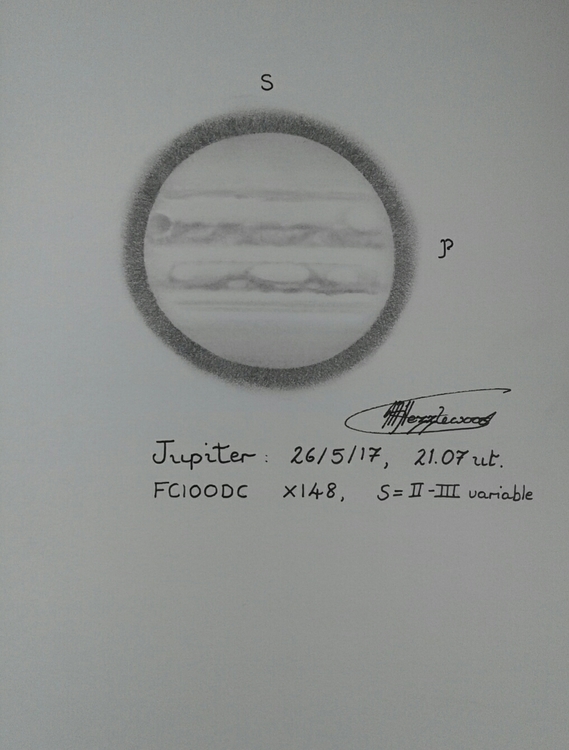 S
P
Jupiter: 26/5/17, 21.07 ut.
FC100DC x148, S=II-III variable